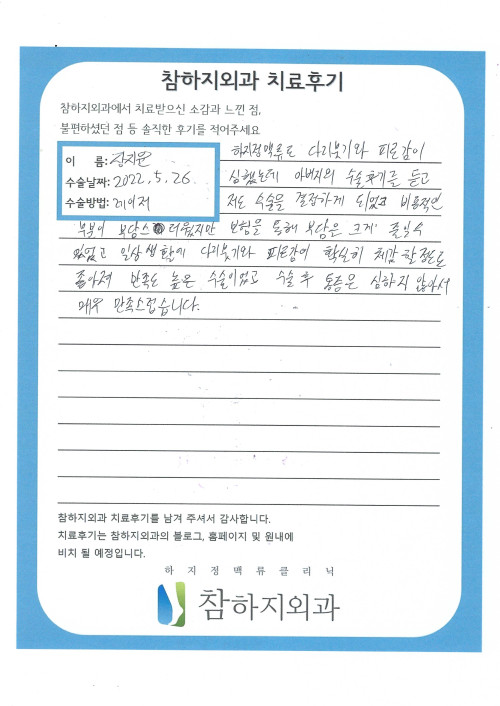 참하지외과 치료후기
참하지외과에서 치료받으신 소감과 느낀 점,
불편하셨던 점 등 솔직한 후기를 적어주세요
이 름:
수술날짜: 2022, 5, 26
수술방법: 레이저
하지정맥류로 다리붓기와 피로감이
심했는데 아버지의 수술후기를 듣고
저도 수술을 결정하게 되었고 비용적인
부분이 부담스 러웠지만 보험을 통해 부담은 크게 줄일수
있었고 일상생활에 다리붓기와 피로감이 확실히 체감할정도로
좋아져 만족도 높은 수술이었고 수술 후 통증은 심하지 않아서
매우 만족스럽습니다.
참하지외과 치료후기를 남겨 주셔서 감사합니다.
치료후기는 참하지외과의 블로그, 홈페이지 및 원내에
비치 될 예정입니다.
하지정맥류클리닉
참하지외과